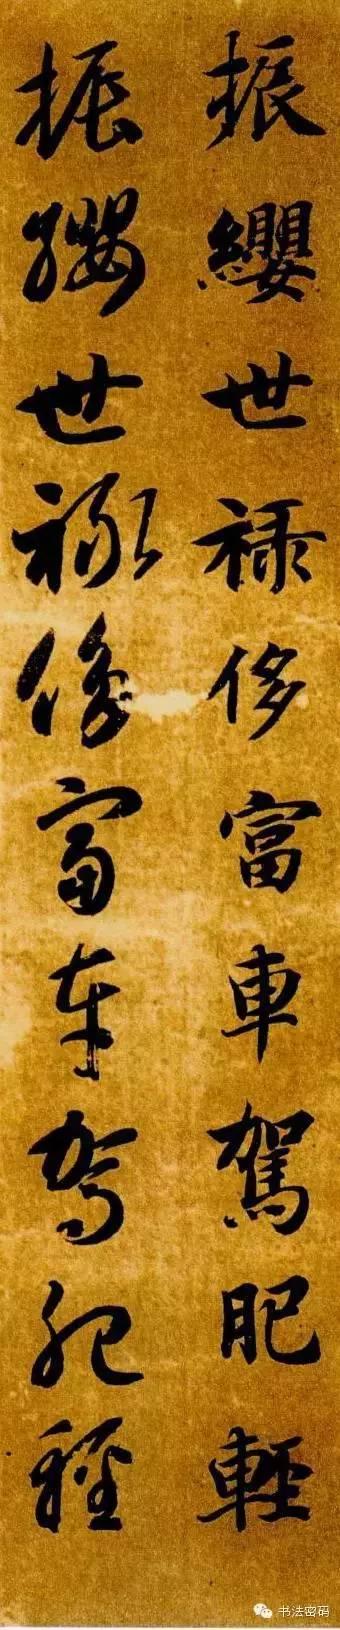 振纓世禄侈富車駕肥輕
振纓世禄侈富車駕肥輕
书法密码